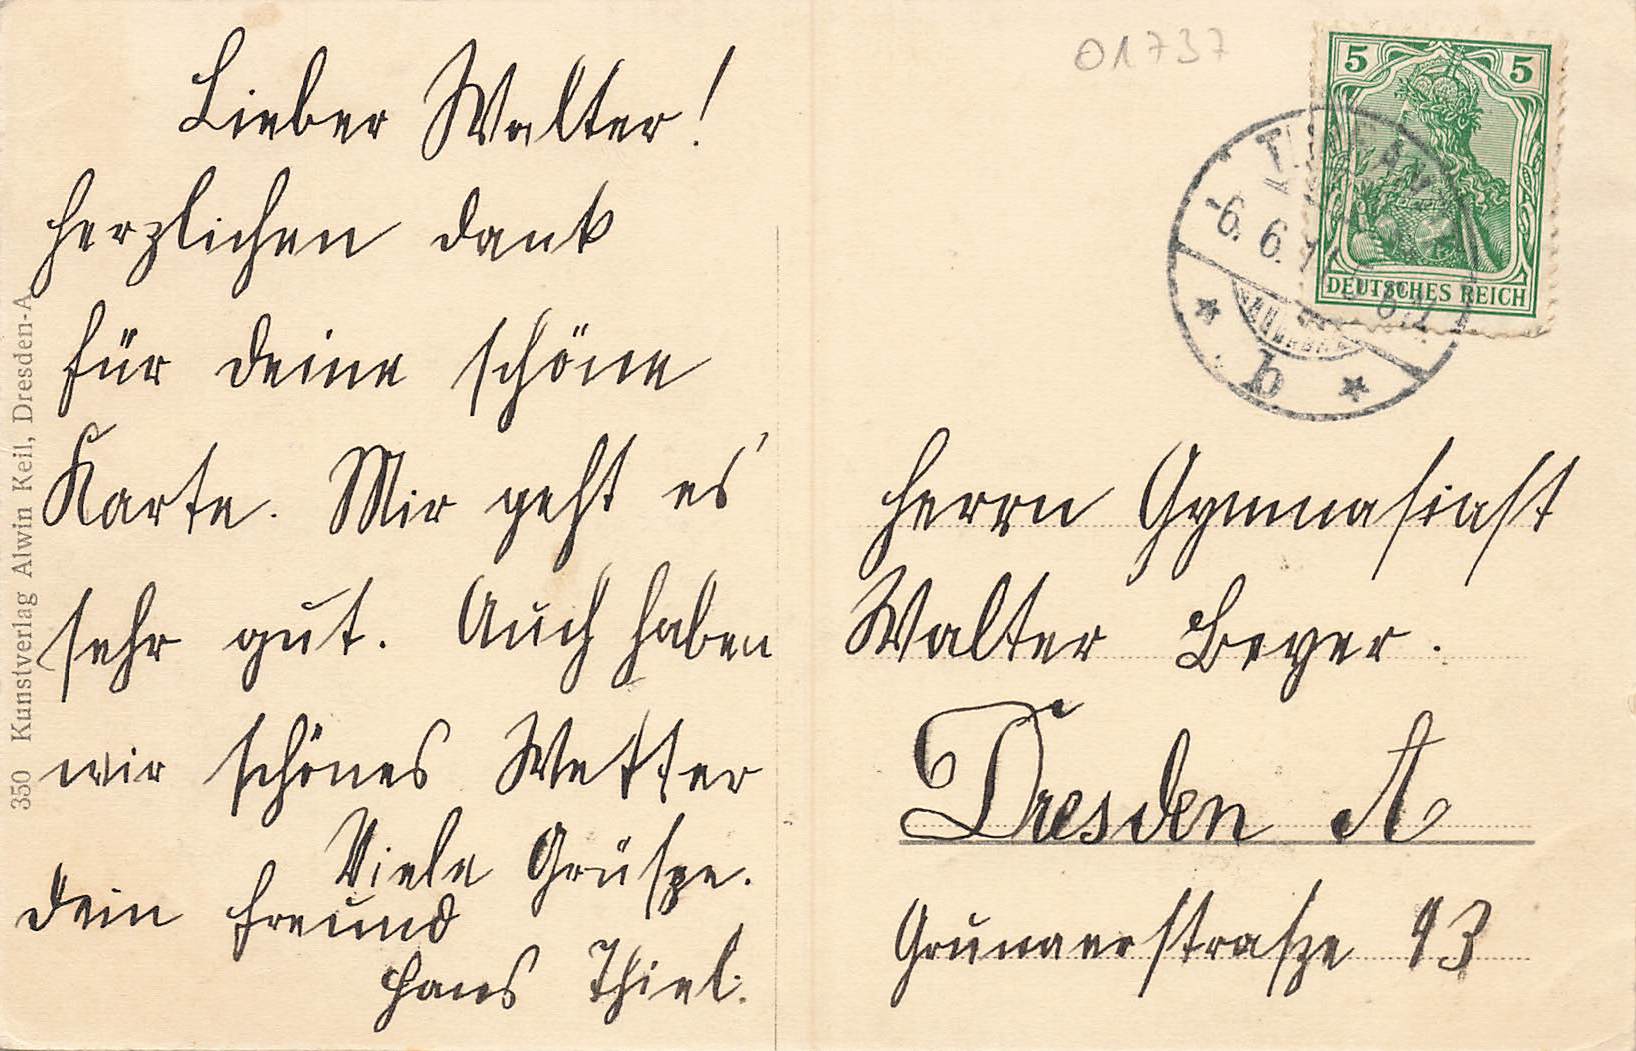 Lieber Walter!
Herzlichen Dank
für deine schöne
Karte. Mir geht es
sehr gut. Auch haben
wir schönes Wetter
Viele Grüsze.
Dein Freund
Hans Thiel.
350 Kunstverlag Alwin Keil, Dresden-A.
01737
5 5
DEUTSCHES REICH
-6. 6.
b
Herrn Gymnasiast
Walter Beyer.
Dresden A
Grunaerstrasze 93